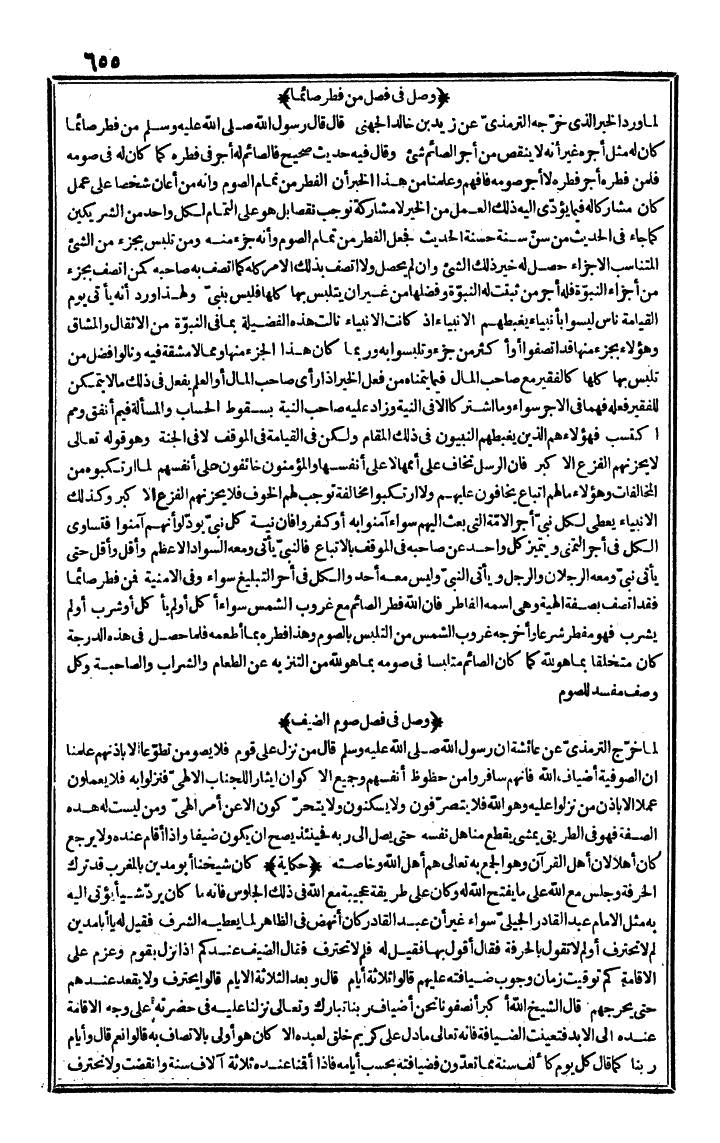 ٦٥٥
﴿وصل فى فصل من فطر صائما﴾
لما ورد الخبر الذى خرّجه الترمذىّ عن زيد بن خالد الجهنى قال قال رسول الله صلى الله عليه وسلم من فطر صائما
كان له مثل أجره غير أنه لا ينقص من أجر الصائم شئ وقال فيه حديث صحيح فالصائم له أجر فى فطره كما كان له فى صومه
فلمن فطره أجر فطره لا أجر صومه فافهم وعلمنا من هذا الخبر أن الفطر من تمام الصوم وانه من أعان شخصا على عمل
كان مشاركا له فيما يؤدّى اليه ذلك العمل من الخير لا مشاركة توجب نقصا بل هو على التمام لكل واحد من الشريكين
كما جاء فى الحديث من سنّ سنة حسنة الحديث فجعل الفطر من تمام الصوم وأنه جزء منه ومن تلبس بجزء من الشئ
المتناسب الاجزاء حصل له خير ذلك الشئ وان لم يحصل ولا اتصف بذلك الامر كله كما اتصف به صاحبه كمن اتصف بجزء
من أجزاء النبوّة فله أجر من ثبتت له النبوّة وفضلها من غير ان يتلبس بها كلها فليس بنبىّ ولهذا ورد أنه يأتى يوم
القيامة ناس ليسوا بأنبياء يغبطهم الانبياء اذ كانت الانبياء نالت هذه الفضيلة بما فى النبوّة من الاثقال والمشاق
وهؤلاء بجزء منها قد اتصفوا أو أكثر من جزء وتلبسوا به وربما كان هذا الجزء منها وبما لا مشقة فيه ونالوا فضل من
تلبس بها كلها كالفقير مع صاحب المال فيما يتمناه من فعل الخير اذا رأى صاحب المال أو العلم يفعل فى ذلك ما لا يتمكن
للفقير فعله فهما فى الاجر سواء وما اشتركا الا فى النية وزاد عليه صاحب النية بسقوط الحساب والمسألة فيم أنفق ومم
اكتسب فهؤلاء هم الذين يغبطهم النبيون فى ذلك المقام ولكن فى القيامة فى الموقف لا فى الجنة وهو قوله تعالى
لا يحزنهم الفزع الاكبر فان الرسل تخاف على أممها لا على أنفسها والمؤمنون خائفون على أنفسهم لما ارتكبوه من
المخالفات وهؤلاء ما لهم اتباع يخافون عليهم ولا ارتكبوا مخالفة توجب لهم الخوف فلا يحزنهم الفزع الاكبر وكذلك
الانبياء يعطى لكل نبىّ أجر الامّة التى بعث اليهم سواء آمنوا به أو كفروا فان نية كل نبىّ يودّ لو أنهم آمنوا فتساوى
الكل فى أجر التمنى ويتميز كل واحد عن صاحبه فى الموقف بالاتباع فالنبىّ يأتى ومعه السواد الاعظم وأقل وأقل حتى
يأتى نبىّ ومعه الرجلان والرجل ويأتى النبىّ وليس معه أحد والكل فى أجر التبليغ سواء وفى الامنية فمن فطر صائما
فقد اتصف بصفة الهية وهى اسمه الفاطر فان الله فطر الصائم مع غروب الشمس سواء أكل أو لم يأكل أو شرب أو لم
يشرب فهو مفطر شرعا وأخرجه غروب الشمس من التلبس بالصوم وهذا فطره بما أطعمه فلما حصل فى هذه الدرجة
كان متخلقا بما هو لله كما كان الصائم متلبسا فى صومه بما هو لله من التنزيه عن الطعام والشراب والصاحبة وكل
وصف مفسد للصوم
﴿وصل فى فصل صوم الضيف﴾
لما خرّج الترمذىّ عن عائشة ان رسول الله صلى الله عليه وسلم قال من نزل على قوم فلا يصومن تطوّعا الا باذنهم علمنا
ان الصوفية أضياف الله فانهم سافروا من حظوظ أنفسهم وجميع الاكوان ايثار اللجناب الالهىّ فنزلوا به فلا يعملون
عملا الا باذن من نزلوا عليه وهو الله فلا يتصرّفون ولا يسكنون ولا يتحرّكون الا عن أمر الهىّ ومن ليست له هذه
الصفة فهو فى الطريق يمشى يقطع مناهل نفسه حتى يصل الى ربه فحينئذ يصح ان يكون ضيفا واذا أقام عنده ولا يرجع
كان أهلا لان أهل القرآن وهو الجمع به تعالى هم أهل الله وخاصته ﴿حكاية﴾ كان شيخنا أبو مدين بالمغرب قد ترك
الحرفة وجلس مع الله على ما يفتح الله له وكان على طريقة عجيبة مع الله فى ذلك الجلوس فانه ما كان يردّ شيأ يؤتى اليه
به مثل الامام عبد القادر الجيلىّ سواء غير أن عبد القادر كان أنهض فى الظاهر لما يعطيه الشرف فقيل له يا أبا مدين
لم لا تحترف أو لم لا تقول بالحرفة فقال أقول بها فقيل له فلم لا تحترف فقال الضيف عندكم اذا نزل بقوم وعزم على
الاقامة كم توقيت زمان وجوب ضيافته عليهم قالوا ثلاثة أيام قال وبعد الثلاثة الايام قالوا يحترف ولا يقعد عندهم
حتى يحرجهم قال الشيخ الله أكبر أنصفونا نحن أضياف ربنا تبارك وتعالى نزلنا عليه فى حضرته على وجه الاقامة
عنده الى الابد فتعينت الضيافة فانه تعالى ما دل على كريم خلق لعبده الا كان هو أولى بالاتصاف به قالوا نعم قال وأيام
ربنا كما قال كل يوم كألف سنة مما تعدّون فضيافته بحسب أيامه فاذا أقمنا عنده ثلاثة آلاف سنة وانقضت ولا نحترف